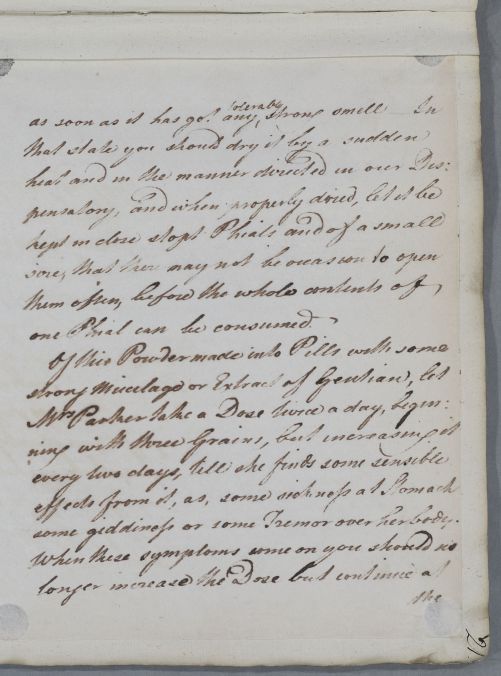 as soon as it has got any, tolerably strong smell In
that state you should dry it by a sudden
heat and in the manner directed in our Dis:
pensatory, and when properly dried, let it be
kept in close stopt Phials and of a small
size, that there may not be occasion to open
them often, before the whole contents of
one Phial can be consumed.
Of this Powder made into Pills with some
strong Mucilage or Extract of Gentian, let
Mrs Parker take a Dose twice a day, begin:
ning with three Grains, but increasing it
every two days, till she finds some sensible
effects from it, as, some sickness at Stomach
some giddiness or some Tremor over her body.
When these symptoms come on you should no
longer increase the Dose but continue at
the